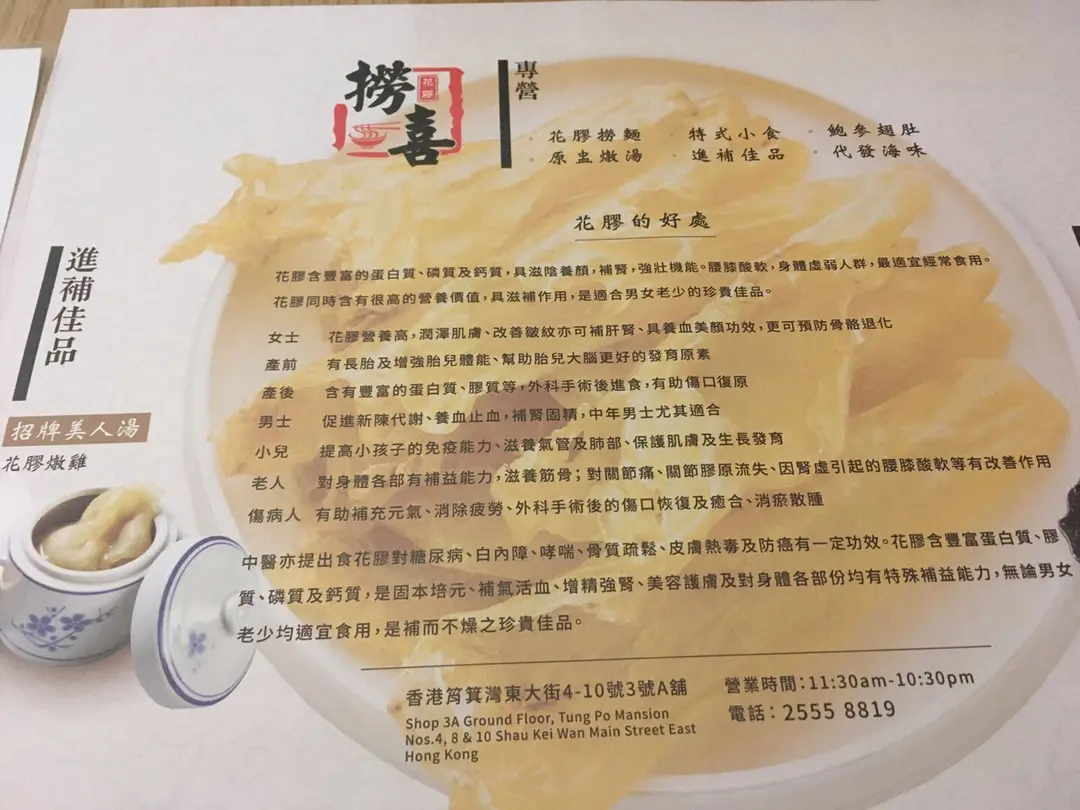 撈喜
花膠
專營
· 花膠撈麵 · 特式小食 · 鮑參翅肚
· 原盅燉湯 · 進補佳品 · 代發海味
花膠的好處
花膠含豐富的蛋白質、磷質及鈣質，具滋陰養顏，補腎，強壯機能。腰膝酸軟，身體虛弱人群，最適宜經常食用。
花膠同時含有很高的營養價值，具滋補作用，是適合男女老少的珍貴佳品。
女士 花膠營養高，潤澤肌膚、改善皺紋亦可補肝腎、具養血美顏功效，更可預防骨骼退化
產前 有長胎及增強胎兒體能、幫助胎兒大腦更好的發育原素
產後 含有豐富的蛋白質、膠質等，外科手術後進食，有助傷口復原
男士 促進新陳代謝、養血止血，補腎固精，中年男士尤其適合
小兒 提高小孩子的免疫能力、滋養氣管及肺部、保護肌膚及生長發育
老人 對身體各部有補益能力，滋養筋骨；對關節痛、關節膠原流失、因腎虛引起的腰膝酸軟等有改善作用
傷病人 有助補充元氣、消除疲勞、外科手術後的傷口恢復及癒合、消瘀散腫
中醫亦提出食花膠對糖尿病、白內障、哮喘、骨質疏鬆、皮膚熱毒及防癌有一定功效。花膠含豐富蛋白質、膠
質、磷質及鈣質，是固本培元、補氣活血、增精強腎、美容護膚及對身體各部份均有特殊補益能力，無論男女
老少均適宜食用，是補而不燥之珍貴佳品。
進補佳品
招牌美人湯
花膠燉雞
香港筲箕灣東大街4-10號3號A舖
Shop 3A Ground Floor, Tung Po Mansion
Nos.4, 8 & 10 Shau Kei Wan Main Street East
Hong Kong
營業時間：11:30am-10:30pm
電話：2555 8819